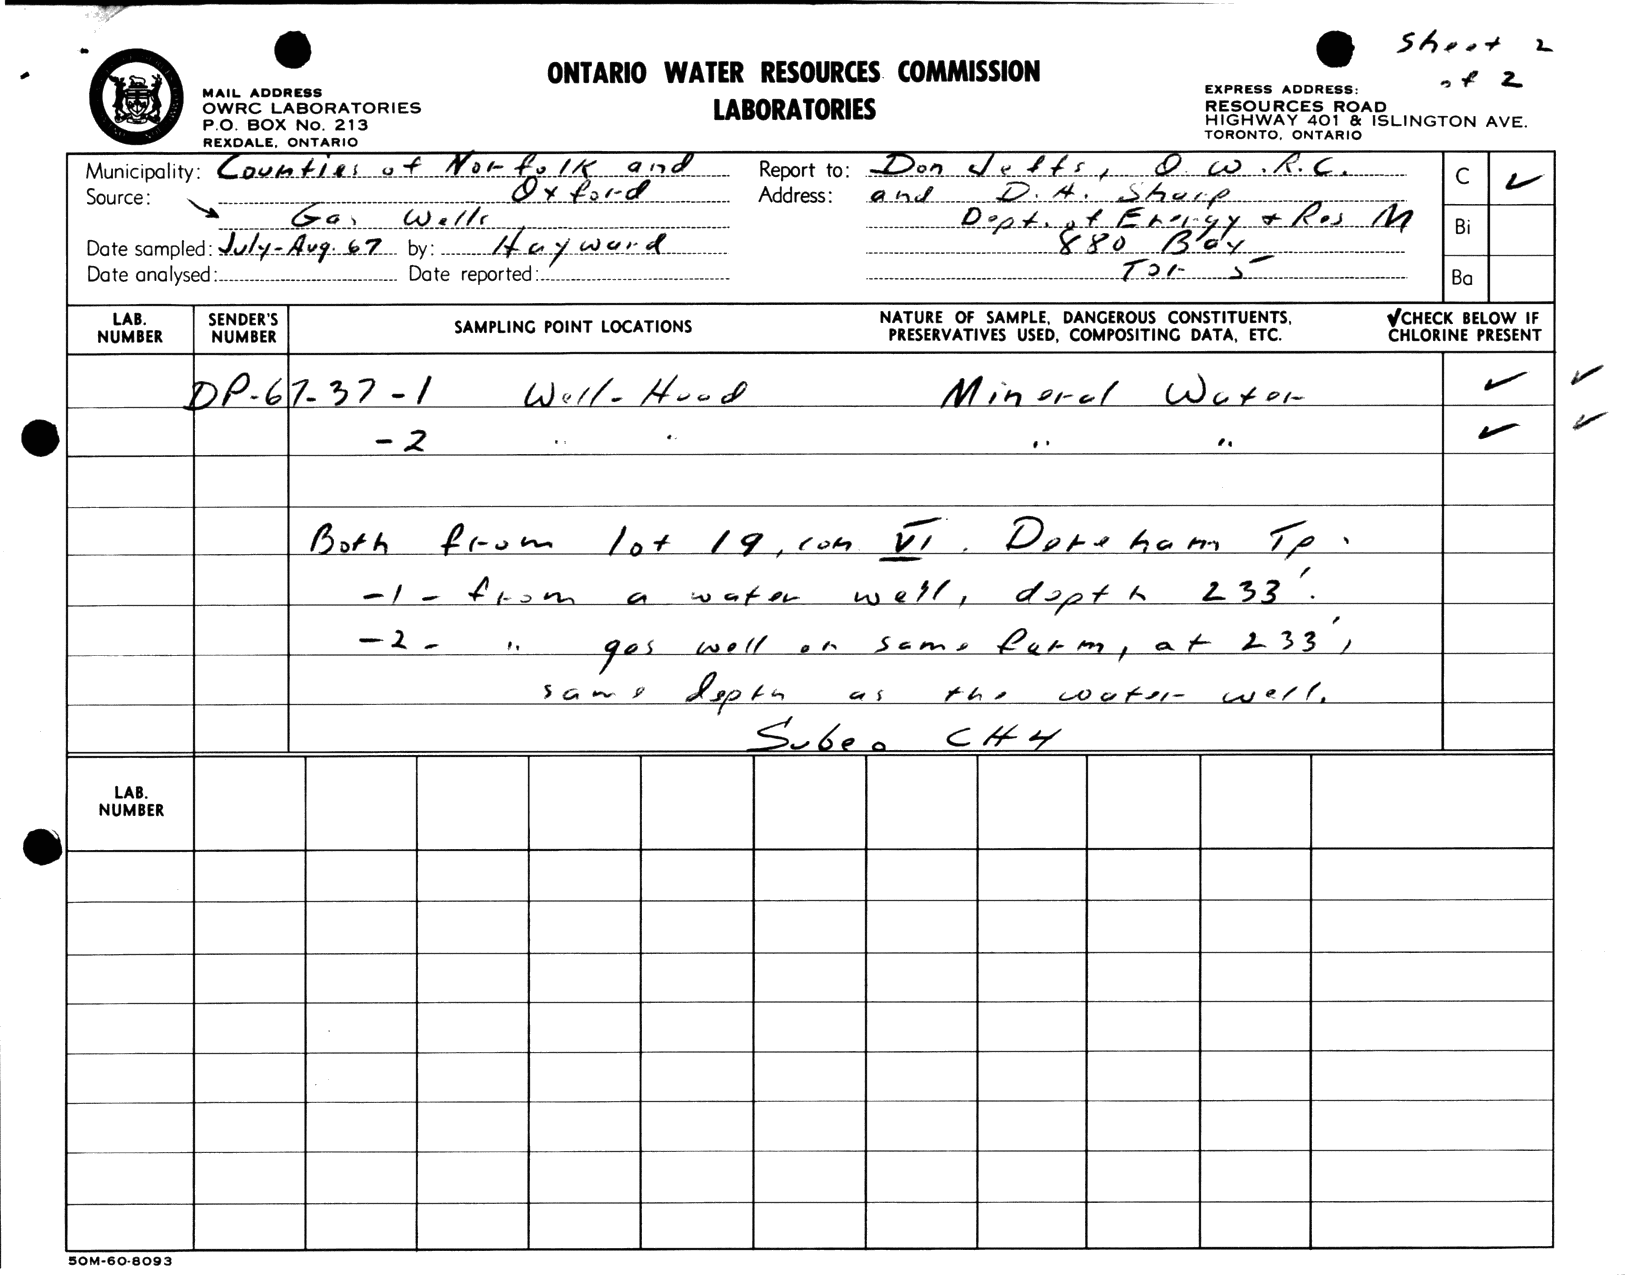 Sheet 2
of 2
ONTARIO WATER RESOURCES COMMISSION
LABORATORIES
MAIL ADDRESS
OWRC LABORATORIES
P.O. BOX No. 213
REXDALE, ONTARIO
EXPRESS ADDRESS:
RESOURCES ROAD
HIGHWAY 401 & ISLINGTON AVE.
TORONTO, ONTARIO
Municipality: Counties of Norfolk and
Oxford
Source:
Gas Wells
Date sampled: July-Aug. 67 by: Hayward
Date analysed: Date reported:
Report to: Don Jeffs, O.W.R.C.
Address: and D. A. Sharp
Dept. of Energy + Res M
880 Bay
Tor 5
C ✓
Bi
Ba
LAB. NUMBER SENDER'S NUMBER SAMPLING POINT LOCATIONS NATURE OF SAMPLE, DANGEROUS CONSTITUENTS, PRESERVATIVES USED, COMPOSITING DATA, ETC. ✓CHECK BELOW IF CHLORINE PRESENT
DP-67-37-1 Well-Head Mineral Water ✓ ✓
-2 " " " " ✓ ✓
Both from lot 19, con VI. Dereham Tp.
-1- from a water well, depth 233'.
-2- " gas well on same farm, at 233',
same depth as the water well.
CH4
LAB. NUMBER
50M-60-8093